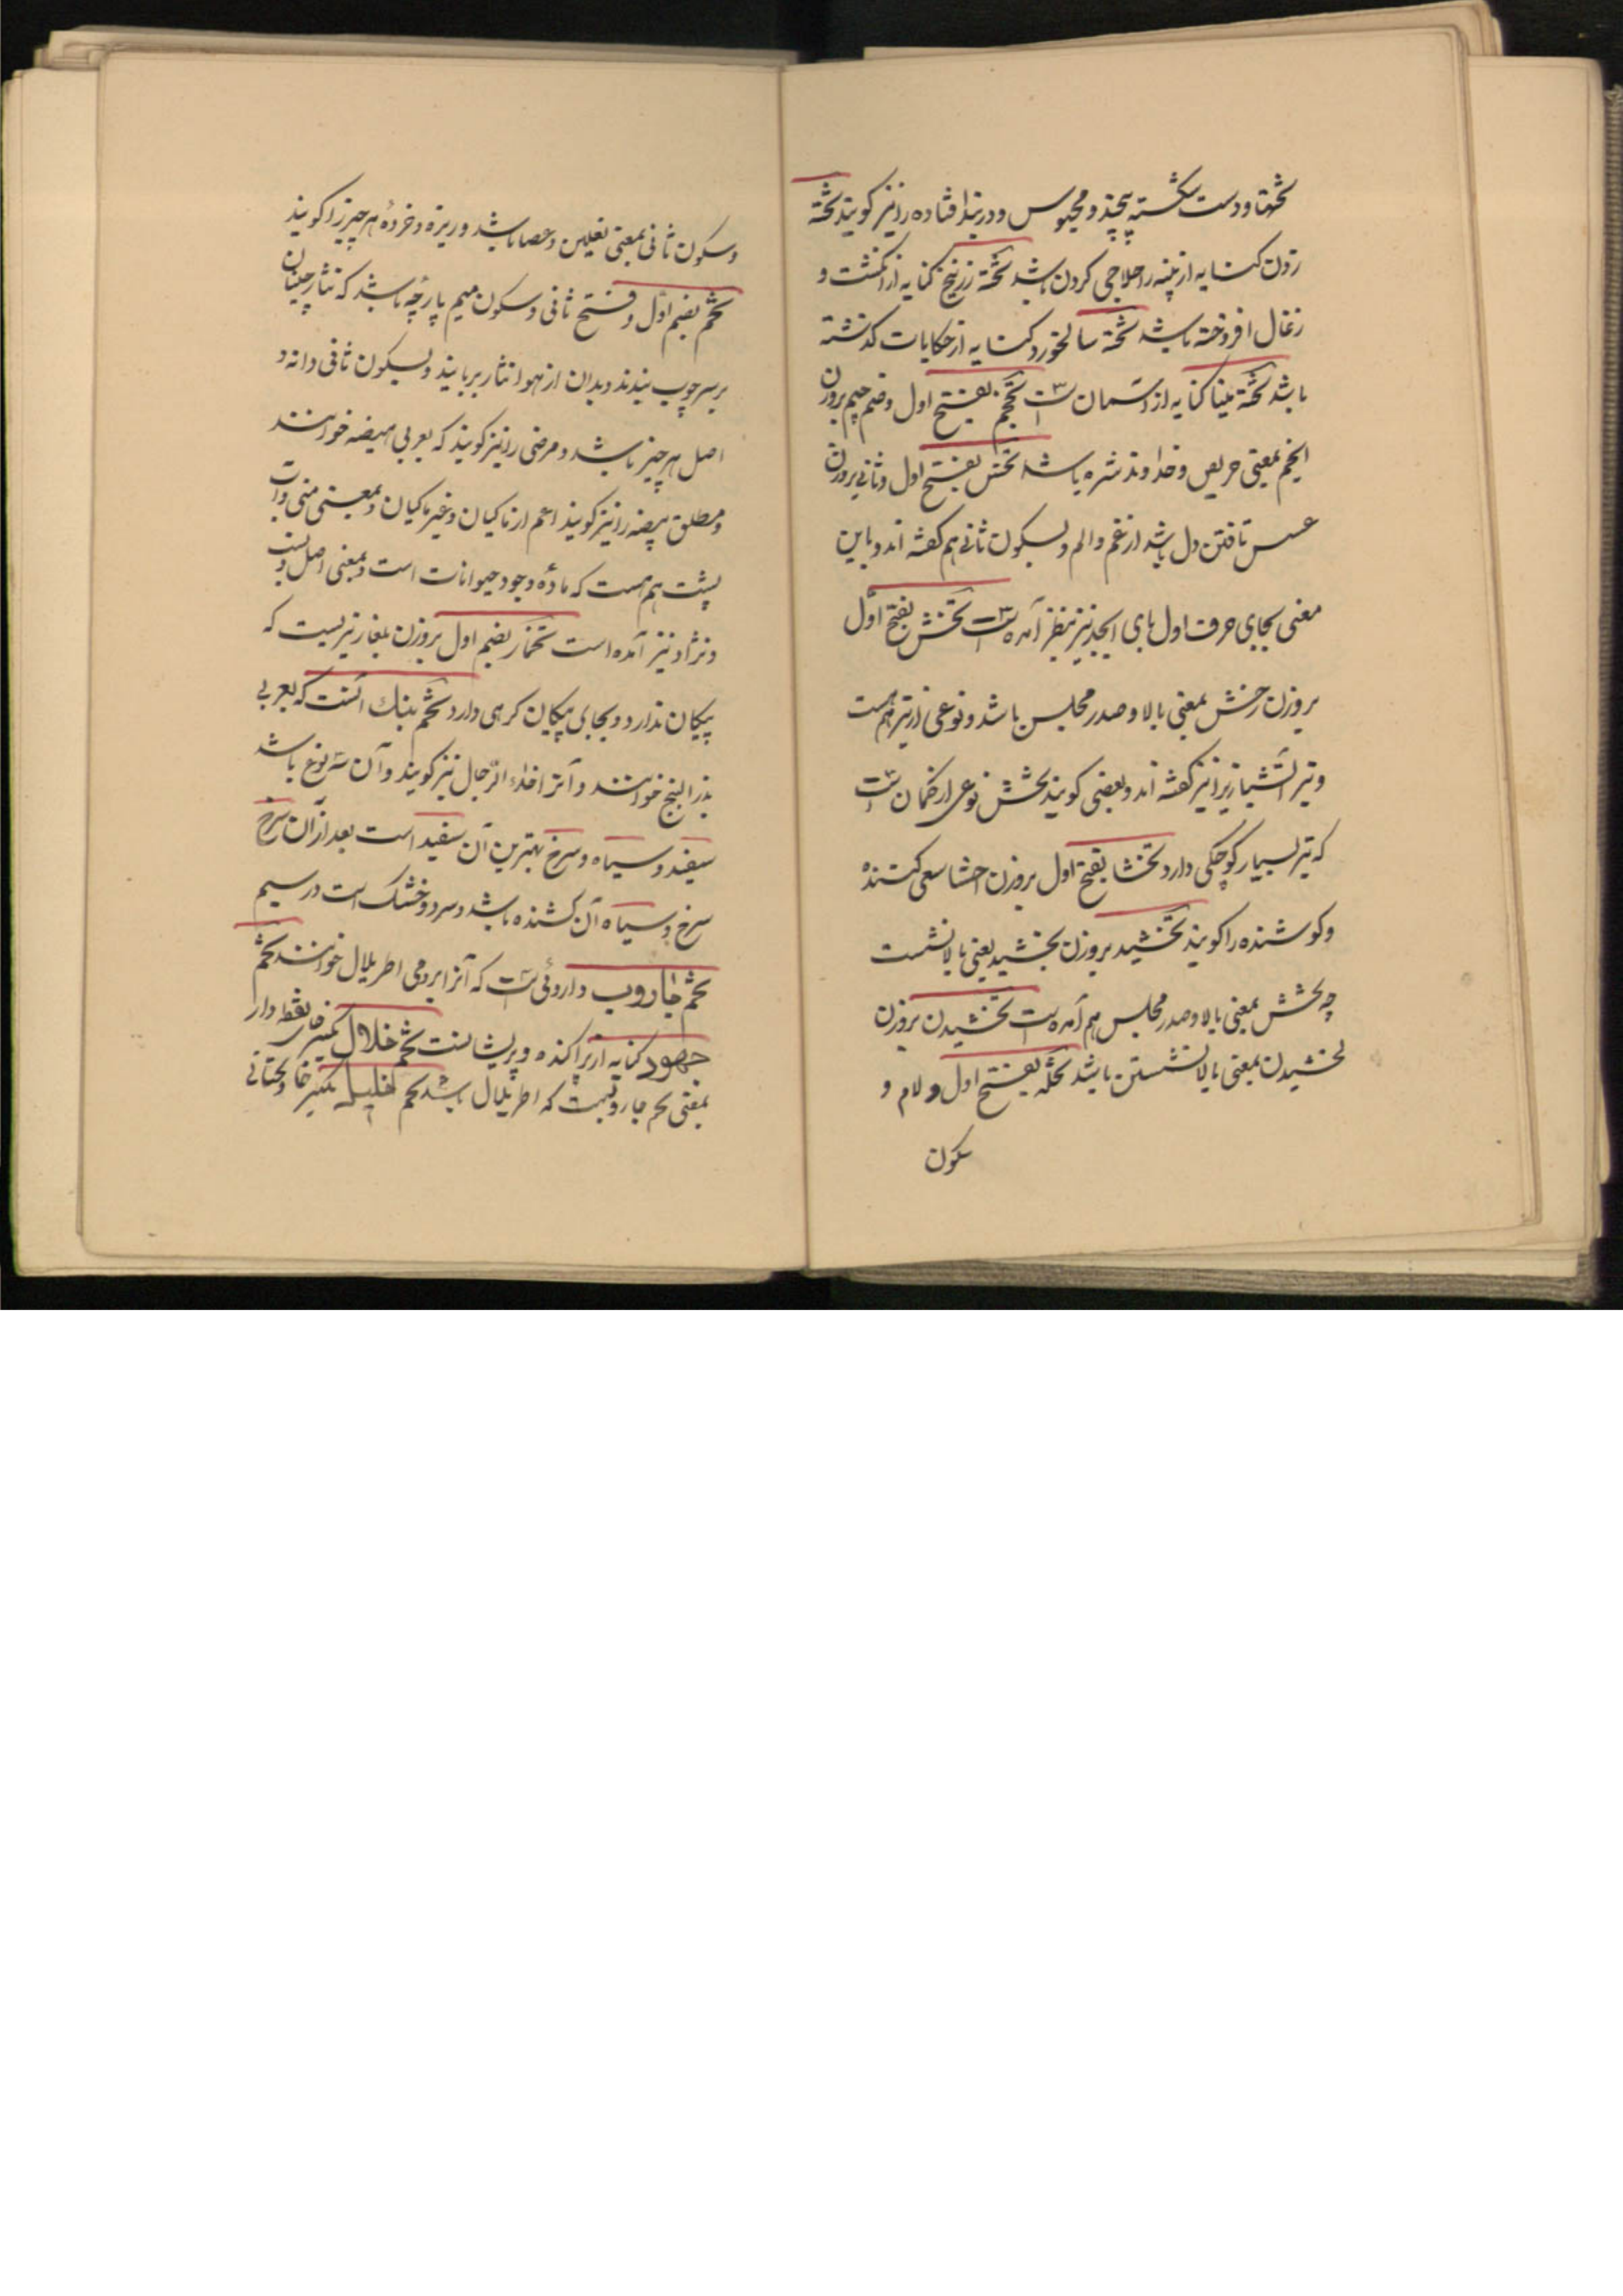 تختها و دست شکسته پیچند و محبوس و دربند افتاده را نیز کویند تخته
زدن کنایه از پنبه را حلاجی کردن باشد تخته زرنیخ کنایه از انکشت و
زغال افروخته باشد تخته سالخورد کنایه از حکایات کذشته
باشد تخته مینا کنایه از آسمان است تخجم بفتح اول و ضم جیم بروزن
انجم بمعنی حریص و خداوند شره باشد تخس بفتح اول و ثانی بروزن
عسس تافتن دل باشد از غم و الم و بسکون ثانی هم کفته اند و باین
معنی بجای حرف اول بای ابجد نیز بنظر آمده است تخش بفتح اول
بروزن رخش بمعنی بالا و صدر مجلس باشد و نوعی از تیر هم هست
و تیر آتشبازیرا نیز کفته اند و بعضی کویند تخش نوعی از کمان است
که تیر بسیار کوچکی دارد تخشا بفتح اول بروزن احشا سعی کننده
و کوشنده را کویند تخشید بروزن بخشید یعنی بالا نشست
چه تخش بمعنی بالا و صدر مجلس هم آمده است تخشیدن بروزن
بخشیدن بمعنی بالا نشستن باشد تخله بفتح اول و لام و
سکون
و سکون ثانی بمعنی نعلین و عصا باشد و ریزه و خردهٔ هر چیز را کویند
تخم بضم اول و فتح ثانی و سکون میم پارچهٔ باشد که نثار چینان
بر سر چوب بندند و بدان از هوا نثار بربایند و بسکون ثانی دانه و
اصل هر چیز باشد و مرضی را نیز کویند که بعربی هیضه خوانند
و مطلق بیضه را نیز کویند اعم از ماکیان و غیر ماکیان و بمعنی منی و آب
پشت هم هست که مادهٔ وجود حیوانات است و بمعنی اصل و نسب
و نژاد نیز آمده است تخمار بضم اول بروزن بلغار تیریست که
پیکان ندارد و بجای پیکان کرهی دارد تخم بنک آنست که بعربی
بذر البنج خوانند و آنرا اخداء الرجال نیز کویند و آن سه نوع باشد
سفید و سیاه و سرخ بهترین آن سفید است بعد از آن سرخ
سرخ و سیاه آن کشنده باشد و سرد و خشک است در سیم
تخم جاروب داروئی است که آنرا برومی اطریلال خوانند تخم
جهود کنایه از پراکنده و پریشانست تخم خلال بکسر خای نقطه دار
بمعنی تخم جاروبست که اطریلال باشد تخم خلیله بکسر خا و تحتانی